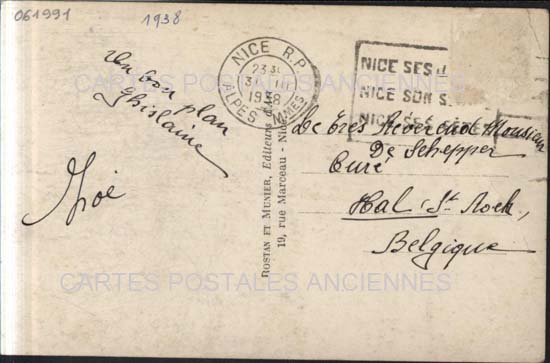 061991
1938
Un bon plan
Ghislaine
Zoé
NICE R.P.
23 30
1938
ALPES MMES
NICE SES
NICE SON S
NICE SES
Le très Révérend Monsieur
De Schepper
Curé
Hal St. Roch,
Belgique
ROSTAN ET MUNIER, Editeurs
19, rue Marceau - Nice
CARTES POSTALES ANCIENNES
CARTES POSTALES ANCIENNES